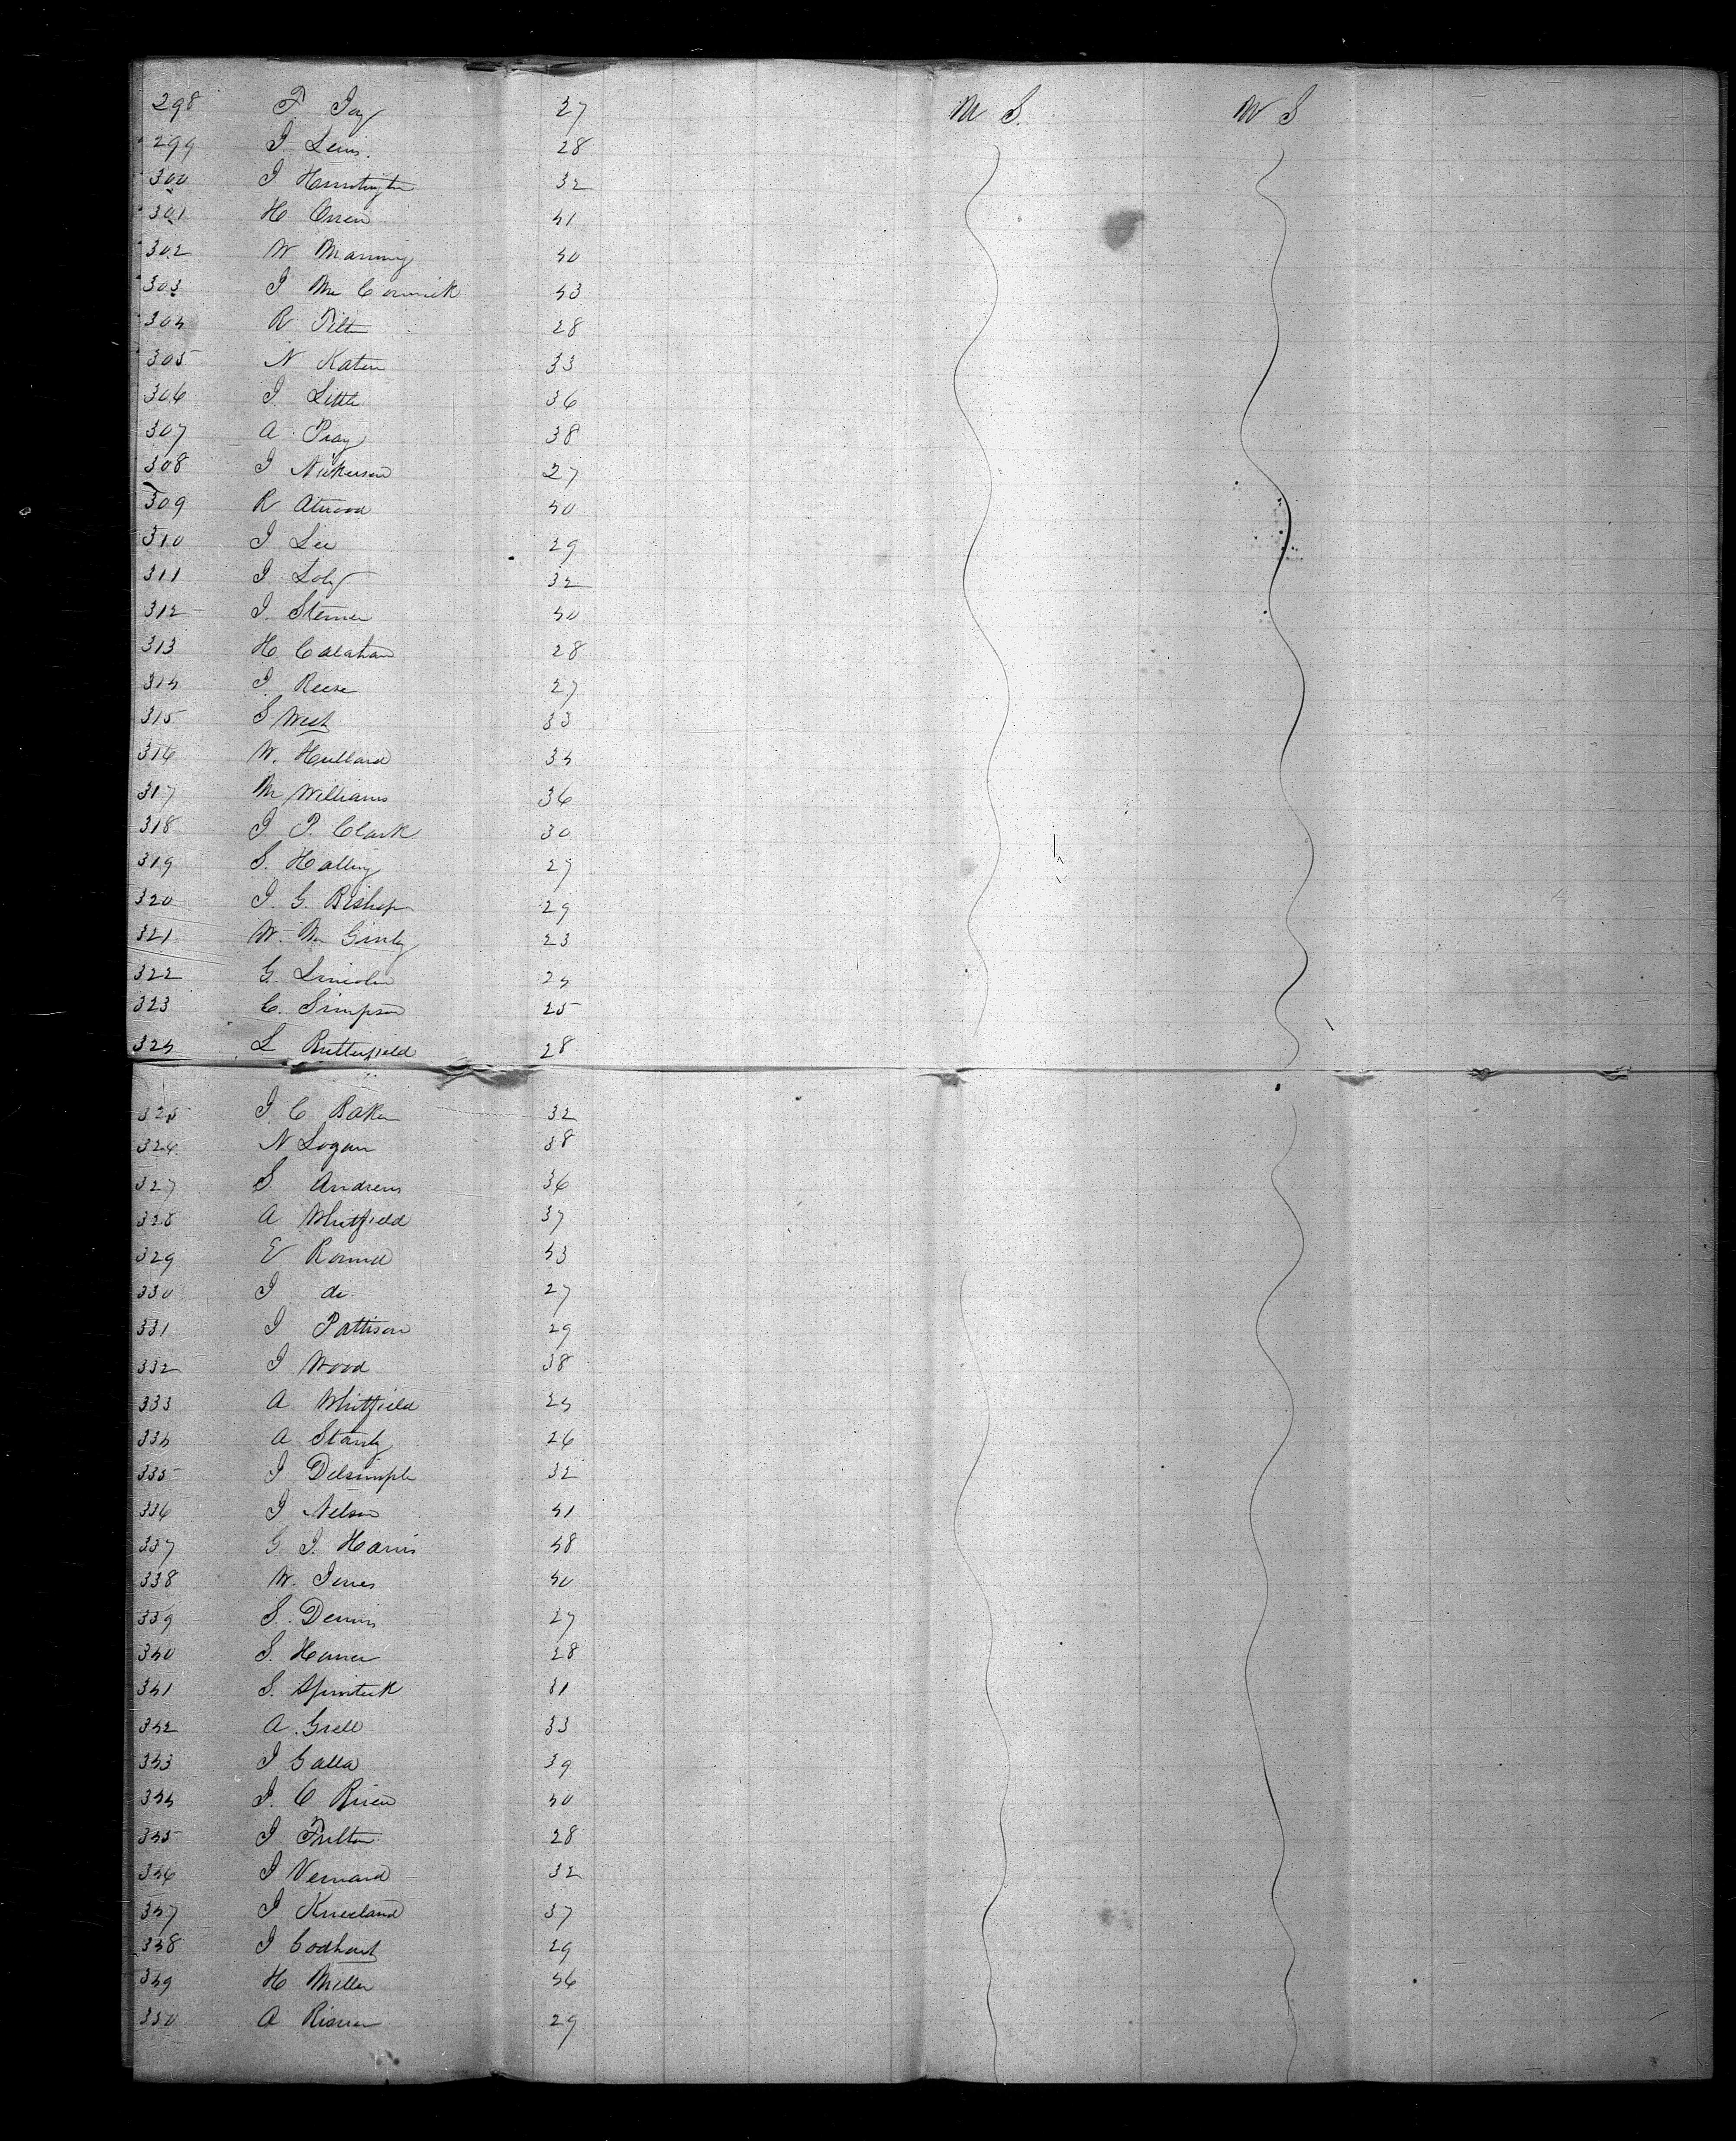 298 F. Joy 27 M S. M S
299 J. Lewis. 28
300 J Hunnington 32
301 H Orren 41
302 W Manning 40
303 J Mc Cormick 43
304 R Tilton 28
305 N Katen 33
306 J. Little 36
307 A. Pray 38
308 J Nickerson 27
309 R Atwood 40
310 J Lee 29
311 J. Loby 32
312 J. Sterner 40
313 H. Calahan 28
314 J. Reese 27
315 S West 33
316 W. Hubbard 34
317 M Williams 36
318 J. P. Clark 30
319 S. Halling 27
320 J. G. Bishop 29
321 W. Mc Ginly 23
322 G. Lincoln 24
323 C. Simpson 25
324 L Butterfield 28
325 J. C Baker 32
326 N Logan 38
327 S Andrews 36
328 A Whitfield 37
329 E Round 43
330 J do 27
331 J Pattison 29
332 J Wood 38
333 A Whitfield 24
334 A Stanly 26
335 J Delsimple 32
336 J Nelson 41
337 G J. Harris 48
338 W. Jones 40
339 S. Dennis 27
340 S. Homer 28
341 S. 31
342 A. Grell 33
343 J Galla 39
344 J. C Ricen 40
345 J Fulton 28
346 J Vernard 32
347 J Kneeland 37
348 J Codhart 29
349 H Miller 46
350 A 29